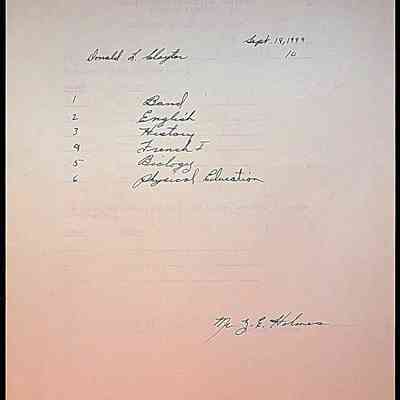 Sept. 19, 1999
Donald L. Clayton
10
1 Band
2 English
3 History
4 French I
5 Biology
6 Physical Education
Mr. Z. E. Holmes